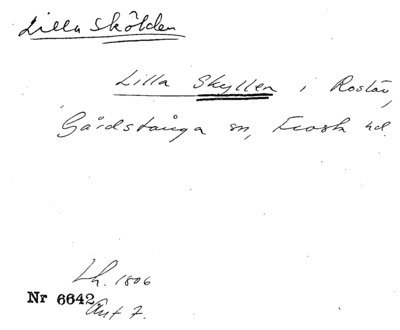 Lilla Skölden
Lilla Skyllen i
Gårdstånga sn, Frosta hd.
Lh. 1806
Nr 6642
Ant 7.